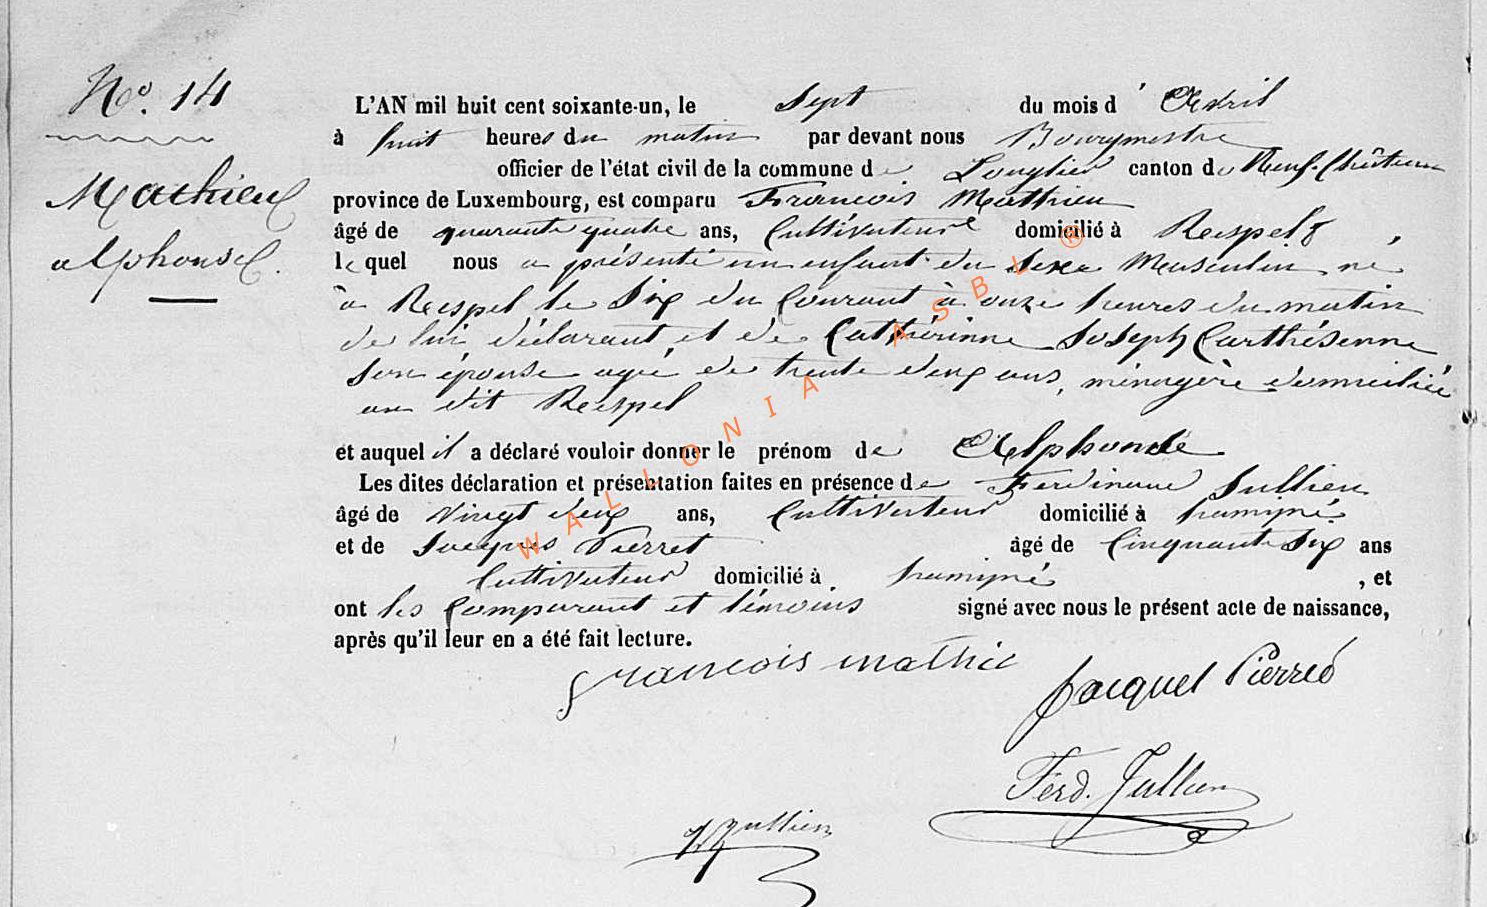 No. 14
Mathieu
alphonse.
L'AN mil huit cent soixante-un, le sept du mois d' Avril
à huit heures du matin par devant nous Bourgmestre
officier de l'état civil de la commune de Longlier canton de Neuf-Château
province de Luxembourg, est comparu François Mathieu
âgé de quarante quatre ans, Cultivateur domicilié à Respelt
lequel nous a présenté un enfant du sexe Masculin né
à Respel le Six du Courant à onze heures du matin
de lui déclarant et de Cathérinne Joseph Carthésenne
son épouse agé de trente deux ans, ménagère domiciliée
au dit Respel
et auquel il a déclaré vouloir donner le prénom de Alphonse
Les dites déclaration et présentation faites en présence de Ferdinand Jullien
âgé de vingt deux ans, Cultivateur domicilié à hamipré
et de Jacques Pierret âgé de Cinquante Six ans
Cultivateur domicilié à hamipré , et
ont les Comparant et témoins signé avec nous le présent acte de naissance,
après qu'il leur en a été fait lecture.
françois mathie
Jacques Pierred
Ferd. Jullien
Jullien
WALLONIA ASBL ®